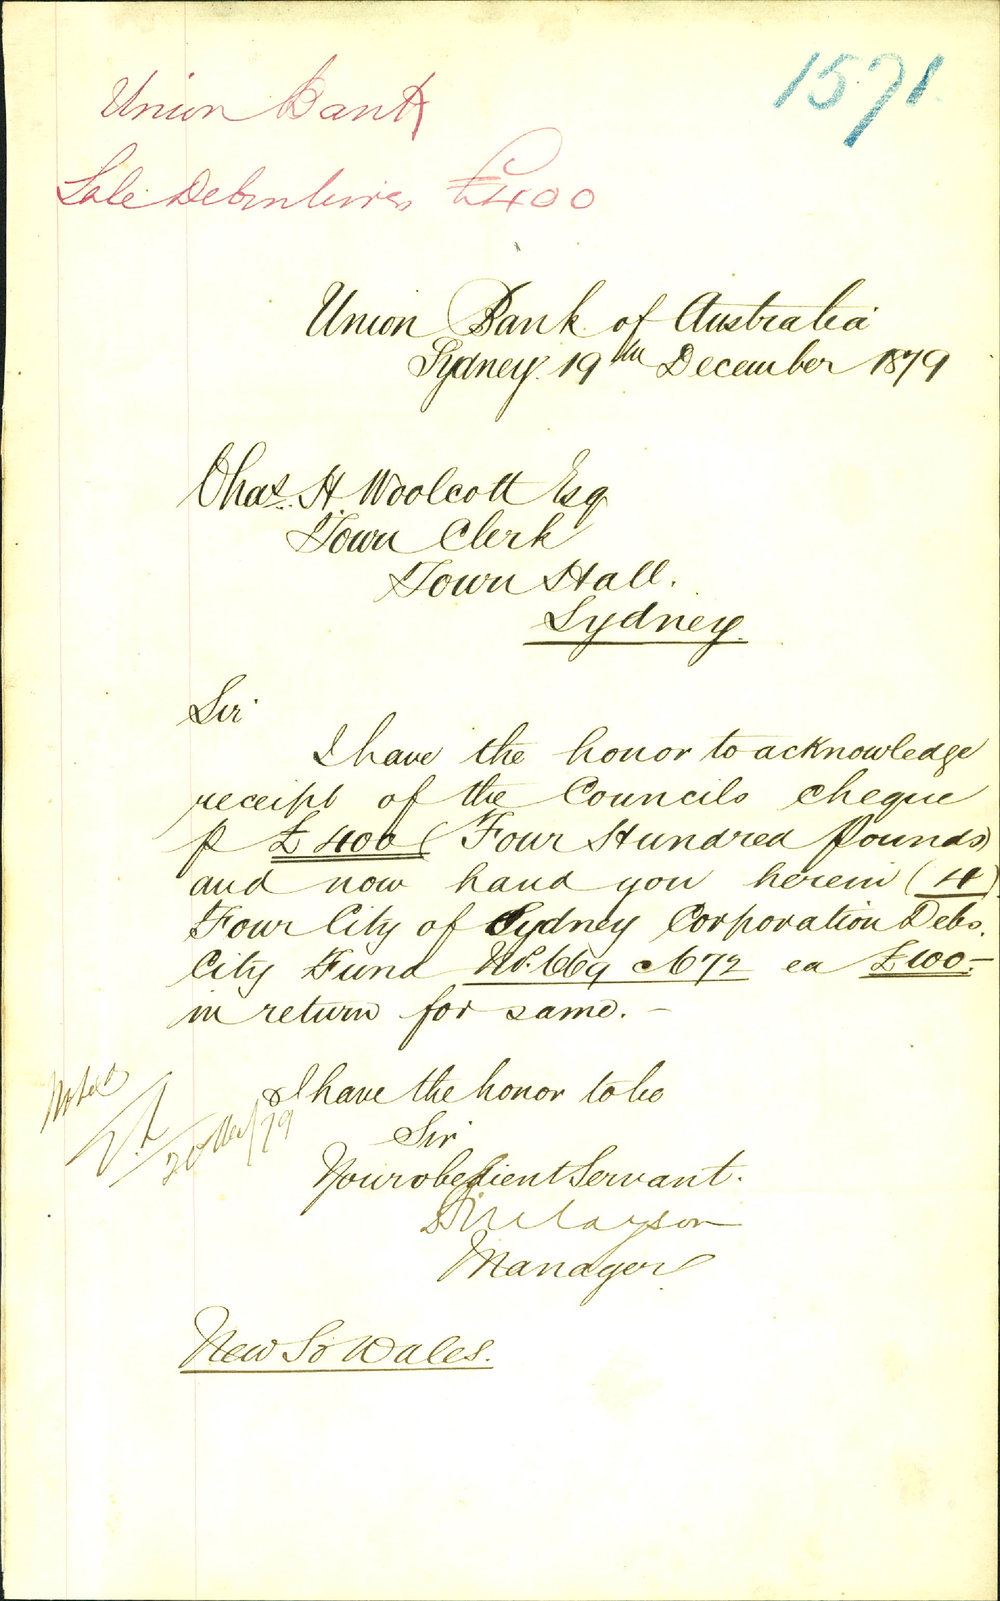 1571
Union Bank
Sale Debentures £400
Union Bank of Australia
Sydney. 19th December 1879
Chas. H. Woolcott Esq
Town Clerk
Town Hall.
Sydney.
Sir
I have the honor to acknowledge
receipt of the Councils cheque
p £400 (Four Hundred Pounds)
and now hand you herein (4)
Four City of Sydney Corporation Debs.
City Fund No. 669 @ 672 ea £100.-
in return for same. -
I have the honor to be
Noted
Sir
20 Dec/79
Your obedient Servant.
Manager
New So Wales.